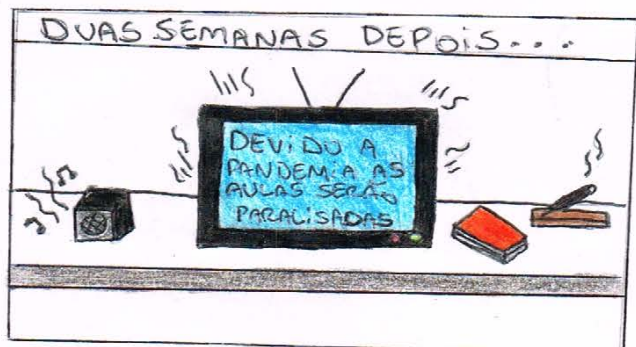 DUAS SEMANAS DEPOIS...
DEVIDO A
PANDEMIA AS
AULAS SERÃO
PARALISADAS